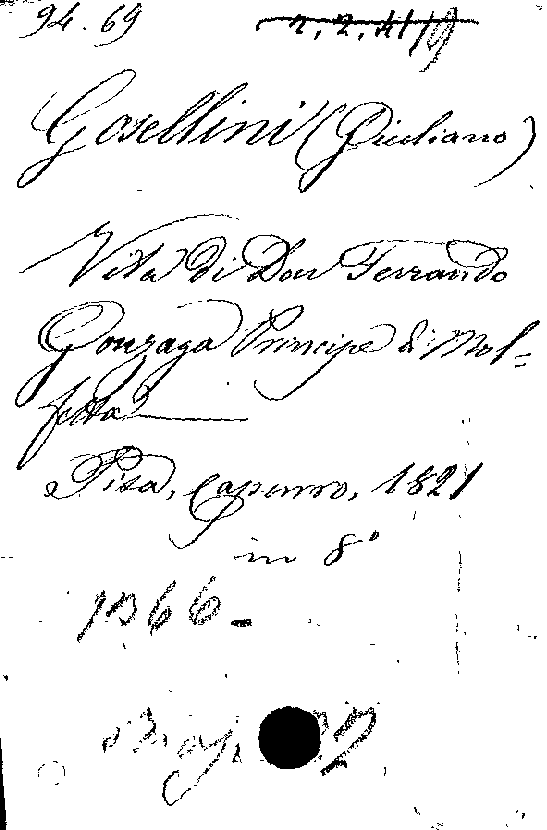 94. 69 2. 2. 4/19
Gosellini (Giuliano)
Vita di Don Ferrando
Gonzaga Principe di Mol=
fetta
Pisa, Capurro, 1821
in 8°
1366-